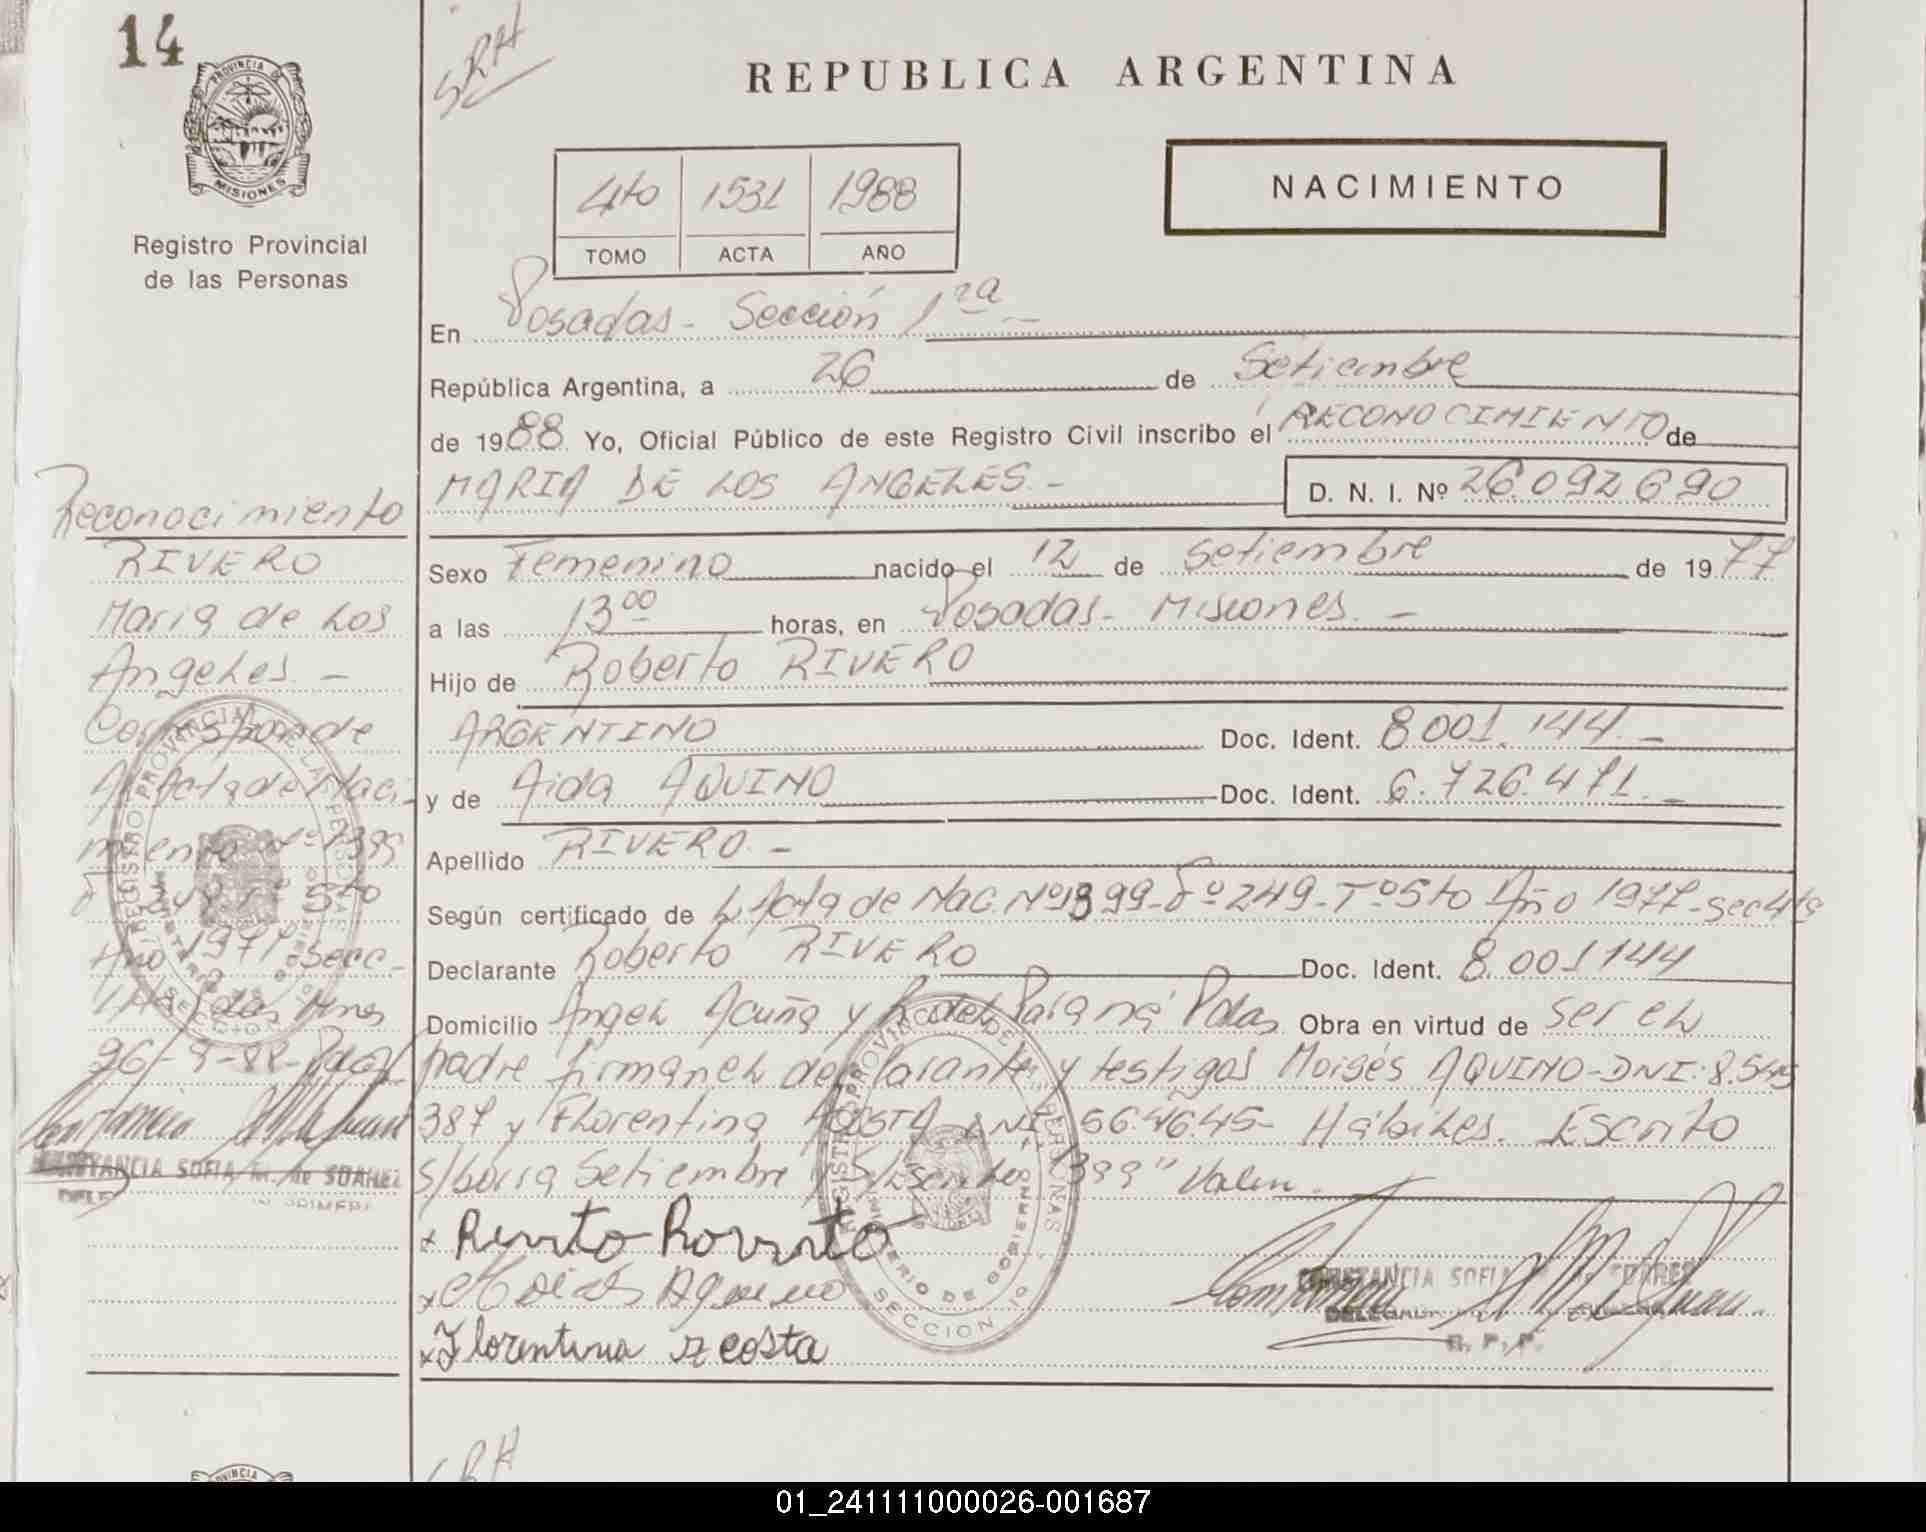 14
SRH
PROVINCIA DE
MISIONES
Registro Provincial
de las Personas
REPUBLICA ARGENTINA
NACIMIENTO
4to 1531 1988
TOMO ACTA AÑO
En Posadas - Sección 1ra -
República Argentina, a 26 de Setiembre
de 1988 Yo, Oficial Público de este Registro Civil inscribo el RECONOCIMIENTO de
MARIA DE LOS ANGELES. - D. N. I. Nº 26092690
Sexo Femenino nacido el 12 de Setiembre de 1977
a las 13 00 horas, en Posadas - Misiones. -
Hijo de Roberto RIVERO
ARGENTINO Doc. Ident. 8.001.144. -
y de Aida AQUINO Doc. Ident. 6.726.471. -
Apellido RIVERO. -
Según certificado de Acta de Nac. Nº 1899 - Fº 249 - Tº 5to Año 1977 - Sec 4ta
Declarante Roberto RIVERO Doc. Ident. 8.001144
Domicilio Angel Acuña y Paraná Pdas Obra en virtud de ser el
padre firman el declarante y testigos Moisés AQUINO - DNI: 8.545
387 y Florentina ACOSTA DNI 5646.45 - Hábiles. Escrito
s/borra Setiembre y S/Escrito 1399" Valen.
x Rivito Rovirto
x Moises Aquino
x Florentina Acosta
CONSTANCIA SOFIA M. de SUAREZ
R. P. P.
Reconocimiento
RIVERO
Maria de Los
Angeles. -
Corresponde
Al Acta de Naci-
miento Nº 1399
Fº 249 Tº 5to
Año 1977 - Secc -
4ta Pdas Mnes
26 - 9 - 88 - Pdas
CONSTANCIA SOFIA M. de SUAREZ
PRIMERA
REGISTRO PROVINCIAL DE LAS PERSONAS
MINISTERIO DE GOBIERNO
SECCION 1º
REGISTRO PROVINCIAL DE LAS PERSONAS
MINISTERIO DE GOBIERNO
SECCION 1º
SRH
PROVINCIA
01_241111000026-001687